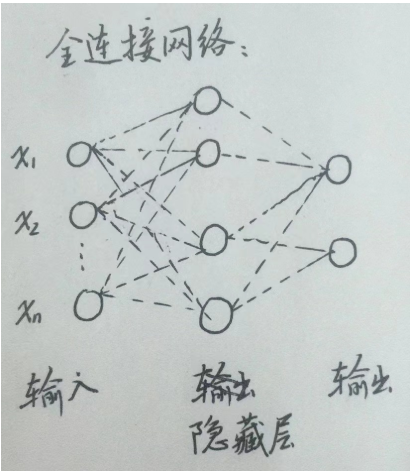 全连接网络:
x₁
x₂
xₙ
输入 输出 输出
隐藏层